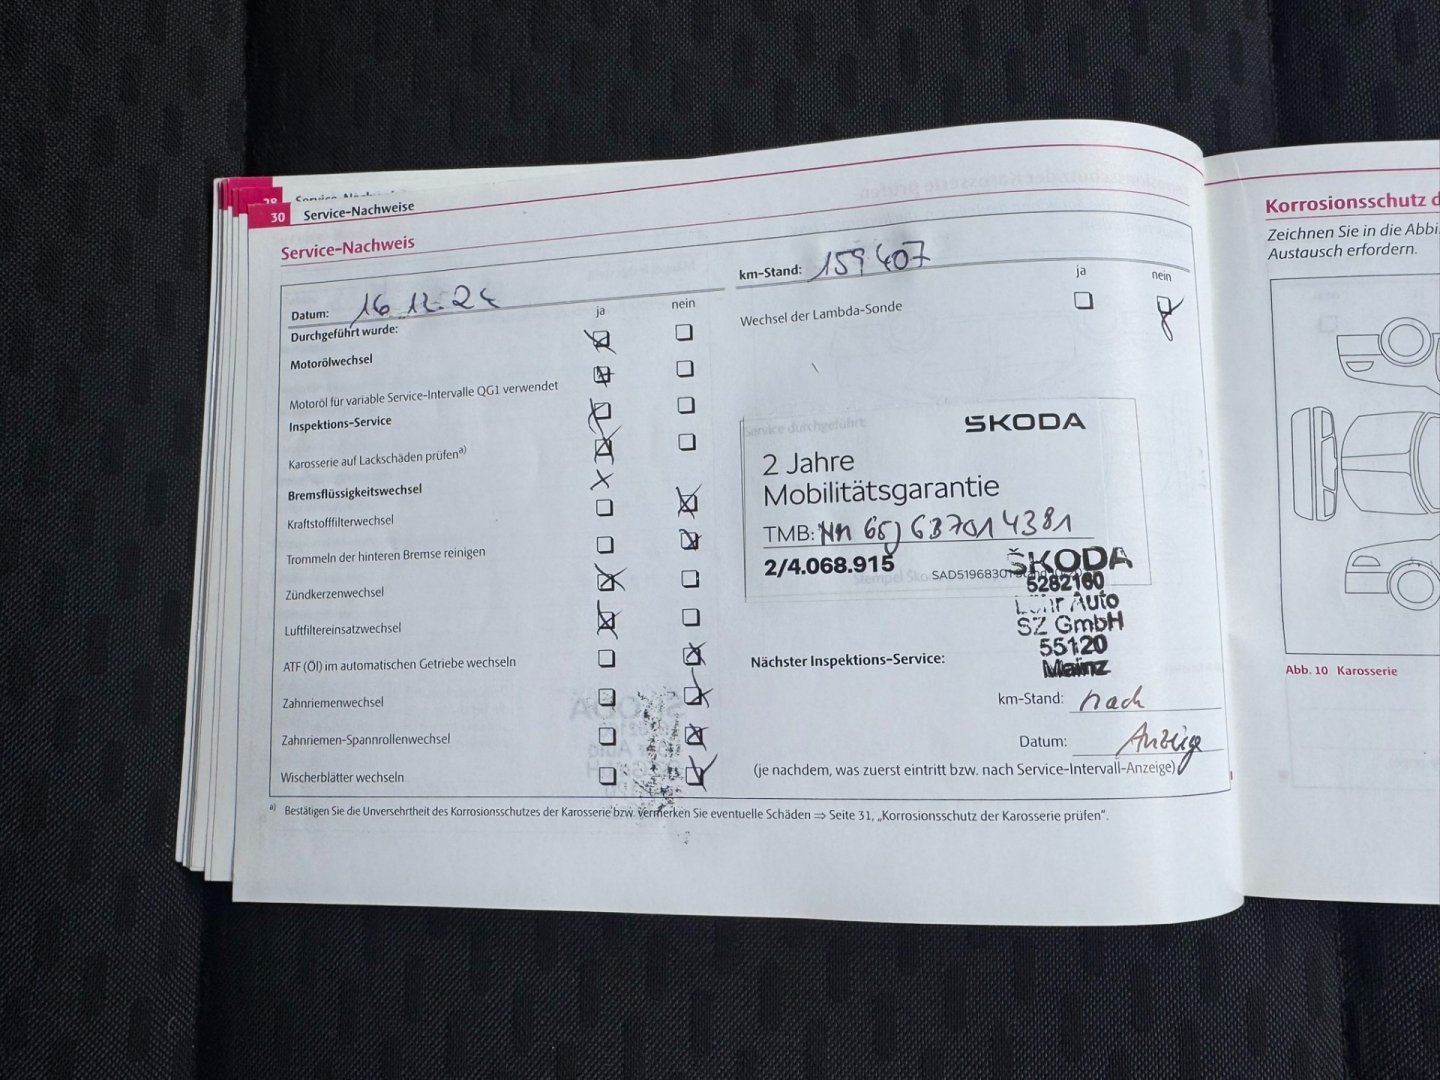 30 Service-Nachweise
Service-Nachweis
Datum: 16.12.24
km-Stand: 159407
Durchgeführt wurde:
ja nein
Motorölwechsel
Motoröl für variable Service-Intervalle QG1 verwendet
Inspektions-Service
Karosserie auf Lackschäden prüfen a)
Bremsflüssigkeitswechsel
Kraftstofffilterwechsel
Trommeln der hinteren Bremse reinigen
Zündkerzenwechsel
Luftfiltereinsatzwechsel
ATF (Öl) im automatischen Getriebe wechseln
Zahnriemenwechsel
Zahnriemen-Spannrollenwechsel
Wischerblätter wechseln
ja nein
Wechsel der Lambda-Sonde
Service durchgeführt:
ŠKODA
2 Jahre
Mobilitätsgarantie
TMB:
2/4.068.915
SAD519683
ŠKODA
5282160
Auto
SZ GmbH
55120
Mainz
Nächster Inspektions-Service:
km-Stand: nach
Datum: Anzeige
(je nachdem, was zuerst eintritt bzw. nach Service-Intervall-Anzeige)
a) Bestätigen Sie die Unversehrtheit des Korrosionsschutzes der Karosserie bzw. vermerken Sie eventuelle Schäden ⇒ Seite 31, „Korrosionsschutz der Karosserie prüfen“.
Korrosionsschutz d
Zeichnen Sie in die Abbi
Austausch erfordern.
Abb. 10 Karosserie